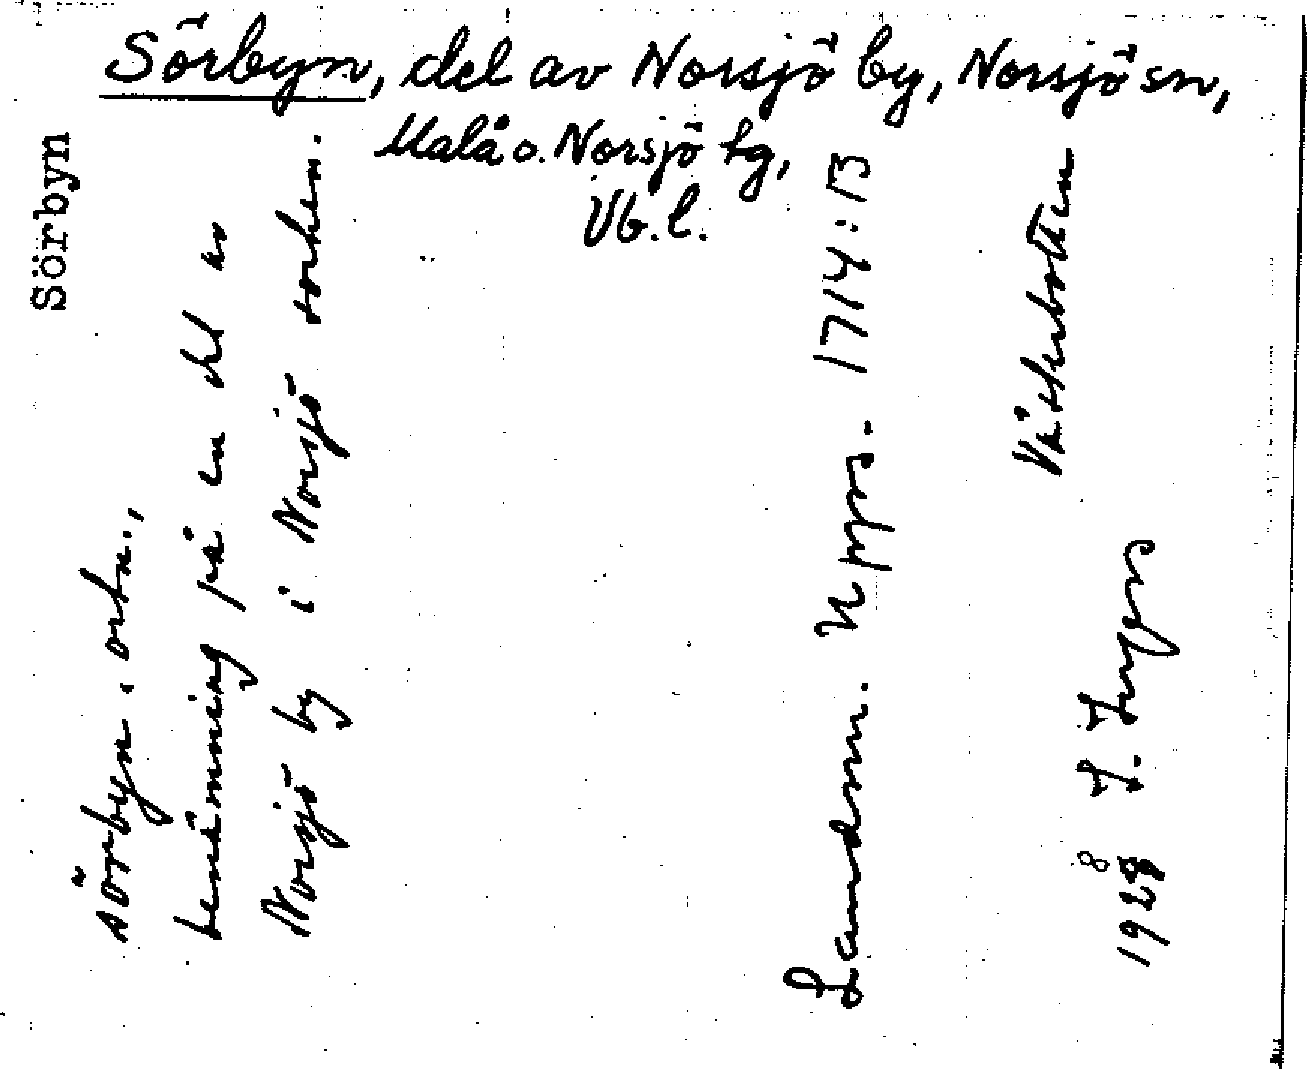 Sörbyn, del av Norsjö by, Norsjö sn,
Malå o. Norsjö tg,
Vb. l.
Sörbyn
sörbyn. ortn.,
benämning på en del av
Norsjö by i Norsjö socken.
Landsm. Upps. 1714:13
Västerbotten
1928 J.
8